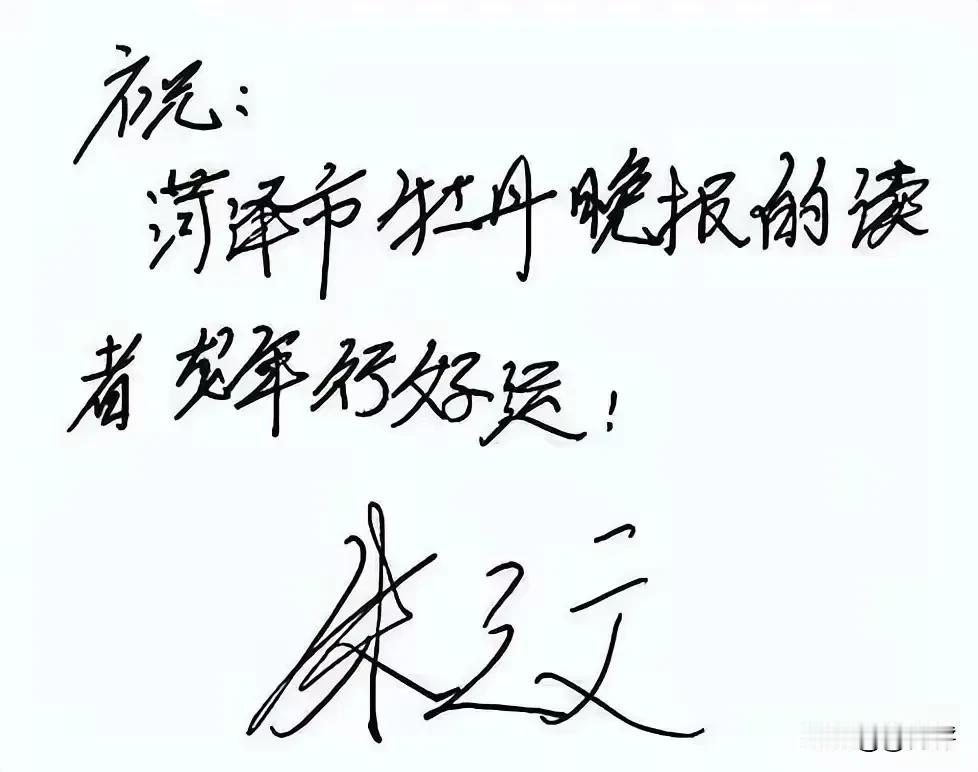 祝：
菏泽市牡丹晚报的读
者龙年行好运！